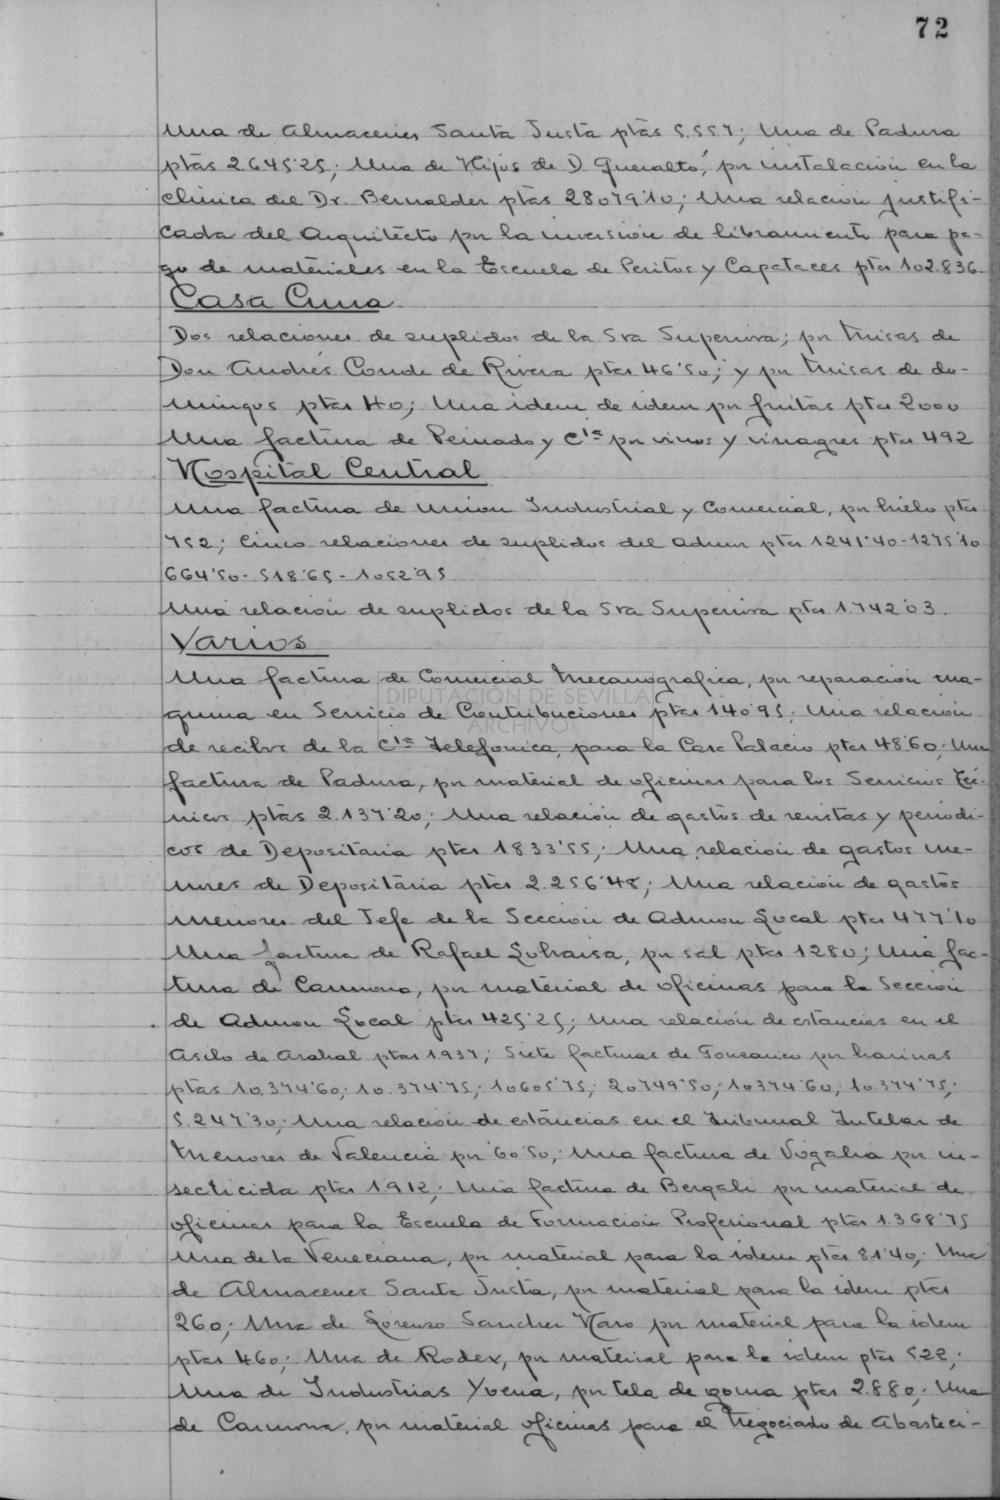 72
Una de Almacenes Santa Justa ptas 5.557; Una de Padura
ptas 2.645'25; Una de Hijos de D Queraltó, por instalación en la
clínica del Dr. Bernalder ptas 28079'10; Una relación justifi-
cada del Arquitecto por la inversión de libramiento para pa-
go de materiales en la Escuela de Peritos y Capataces ptas 102.836
Casa Cuna
Dos relaciones de suplidos de la Sra Superiora; por Misas de
Don Andrés Conde de Rivera ptas 46'50; y por Misas de do-
mingos ptas 40; Una idem de idem por frutas ptas 2000
Una factura de Peinado y Cia por vinos y vinagres ptas 492
Hospital Central
Una factura de Union Industrial y Comercial, por hielo ptas
752; Cinco relaciones de suplidos del Admor ptas 1241'40-1275'10
664'50-518'65-1052'95
Una relación de suplidos de la Sra Superiora ptas 1.742'03.
Varios
Una factura de Comercial Mecanografica, por reparación ma-
quina en Servicio de Contribuciones ptas 140'95; Una relación
DIPUTACIÓN DE SEVILLA
ARCHIVO
de recibos de la Cia Telefonica, para la Casa Palacio ptas 48'60; Una
factura de Padura, por material de oficinas para los Servicios Téc-
nicos ptas 2.137'20; Una relación de gastos de revistas y periodi-
cos de Depositaria ptas 1833'55; Una relación de gastos me-
nores de Depositaria ptas 2.256'48; Una relación de gastos
menores del Jefe de la Sección de Admon Local ptas 477'10
Una factura de Rafael, por sal ptas 1280; Una fac-
tura de Carmona, por material de oficinas para la Sección
de Admon Local ptas 425'25; Una relación de estancias en el
Asilo de Arahal ptas 1937; Siete facturas de por harinas
ptas 10.374'60; 10.374'75; 10605'75; 20749'50; 10374'60; 10.374'75;
5.247'30; Una relación de estáncias en el Tribunal Tutelar de
Menores de Valencia por 60'50; Una factura de por in-
secticida ptas 1912; Una factura de Bergali por material de
oficinas para la Escuela de Formación Profesional ptas 1.368'75
Una de la Veneciana, por material para la idem ptas 81'40; Una
de Almacenes Santa Justa, por material para la idem ptas
260; Una de Lorenzo Sanchez Haro por material para la idem
ptas 460; Una de Rodex, por material para la idem ptas 522;
Una de Industrias Ybena, por tela de goma ptas 2.880; Una
de Carmona, por material oficinas para el Negociado de Abasteci-